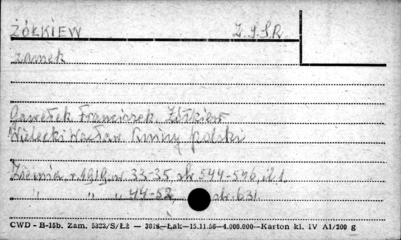 ŻÓŁKIEW Z.S.S.R.
zamek
Gawełek Franciszek. Żółkiew
Wielecki Wacław. Ruiny polski
Ziemia r. 1919 nr 33-35 str. 544-546, il. 1.
" " " 44-52, str. 631.
CWD - B-15b. Zam. 5822/S/Łż — 3018—Łak—15.11.56—4.000.000—Karton kl. IV A1/200 g